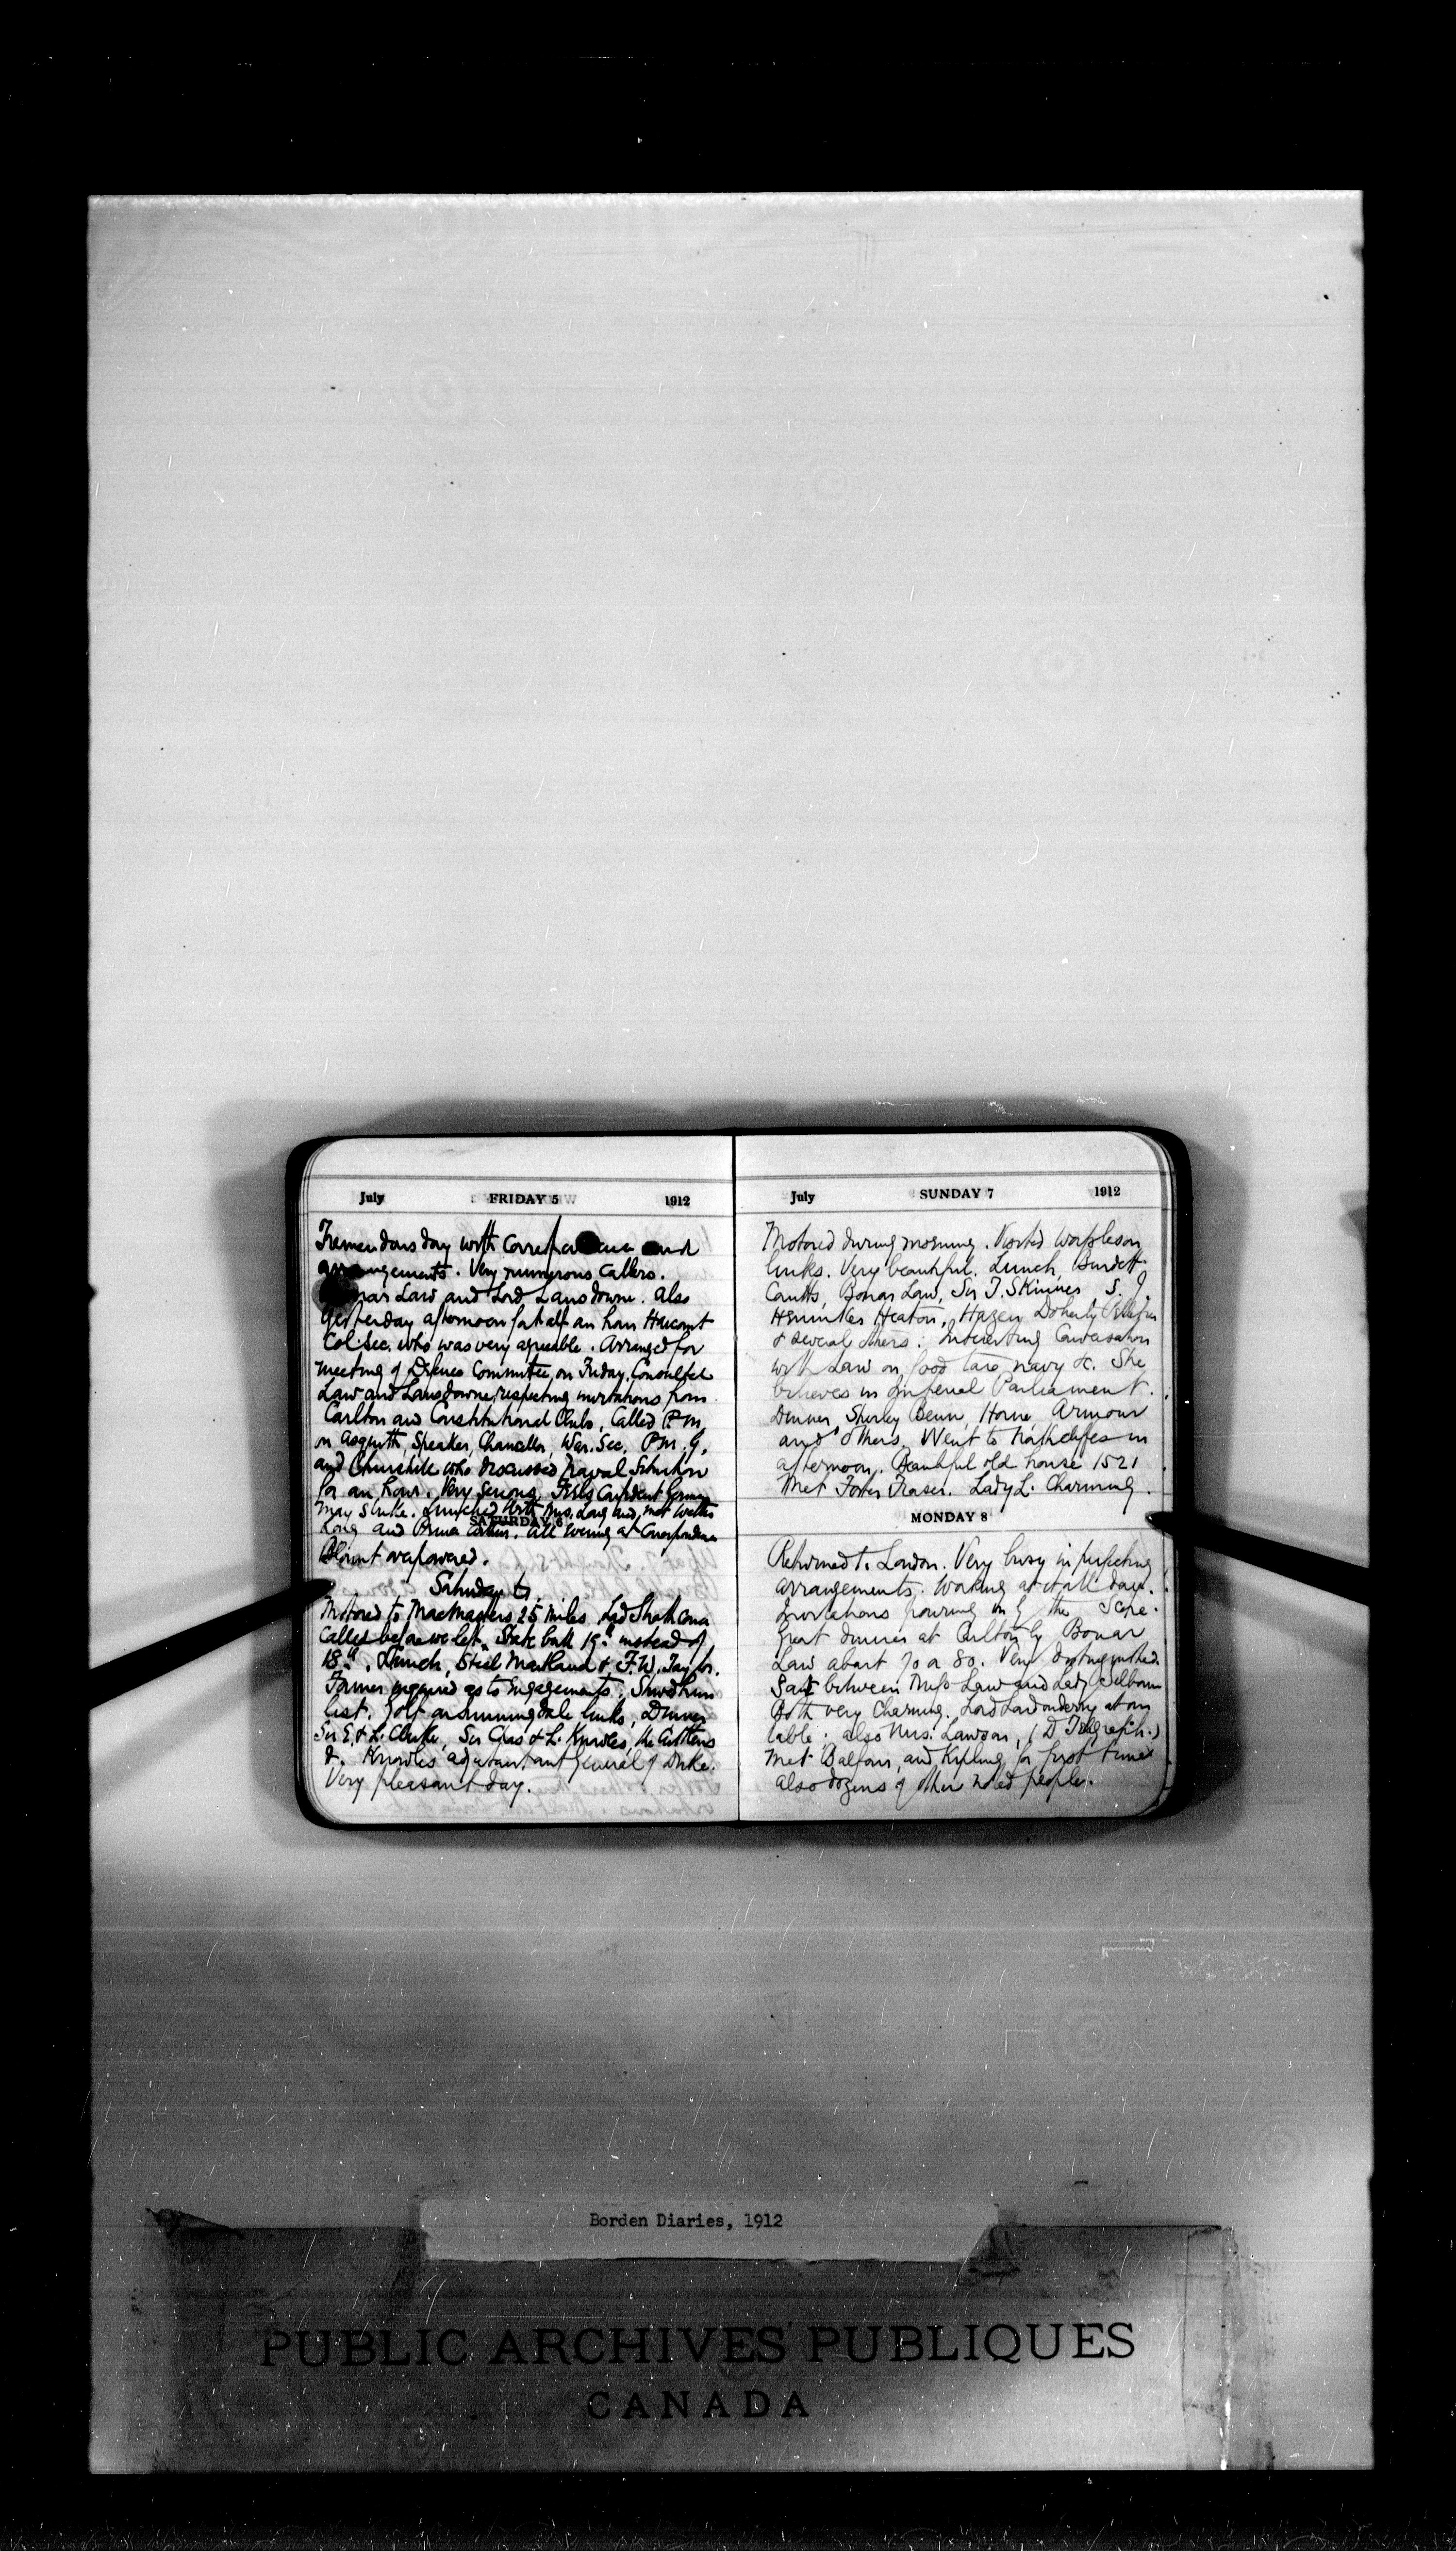 July FRIDAY 5 1912
Tremendous day with correspondence and
arrangements. Very numerous callers.
Bonar Law and Lord Lansdowne. Also
yesterday afternoon for half an hour Harcourt
Col. Sec. who was very agreeable. Arranged for
meeting of Defence Committee on Friday. Consulted
Law and Lansdowne respecting invitations from
Carlton and Constitutional Clubs. Called P.M.
on Asquith, Speaker, Chancellor, War. Sec. P.M.G.
and Churchill who discussed naval situation
for an hour. Very serious. Feels Confident German
may strike. Lunched with Mrs. Long and met Walter
SATURDAY 6
Long and Prince . All evening at Correspondence
Blount overpowered.
Saturday 6.
Motored to MacMasters 25 miles. Lord Strathcona
called before we left. State ball 19th instead of
18th. Lunch, Steel Maitland & F.W. Taylor.
Former inquired as to engagements. Showed him
list. Golf on Sunningdale links, Dinner
Sir E. & L. Clarke, Sir Chas & L. Knowles,
&. Knowles general of Duke.
Very pleasant day.
July SUNDAY 7 1912
Motored during morning. Visited Worpleson
links. Very beautiful. Lunch, Burdett
Coutts, Bonar Law, Sir T. Skinner, S. J.
Henniker Heaton, Hazen Doherty
& several others. Interesting Conversation
with Law on food tax, navy &c. She
believes in Imperial Parliament.
Dinner, Shirley Benn, Horne, Armour
and others. Went to in
afternoon. Beautiful old house 1521
Met Foster Fraser. Lady L. Charming.
MONDAY 8
Returned to London. Very busy in perfecting
arrangements. Working at it all day.
Invitations pouring in of the
Great dinner at Carlton by Bonar
Law about 70 or 80. Very distinguished.
Sat between Miss Law and Lady Selborne
Both very Charming. Lord Londonderry at our
table. also Mrs. Lawson, (D Telegraph.)
Met Balfour, and Kipling for first time
also dozens of other noted people.
Borden Diaries, 1912
PUBLIC ARCHIVES PUBLIQUES
CANADA